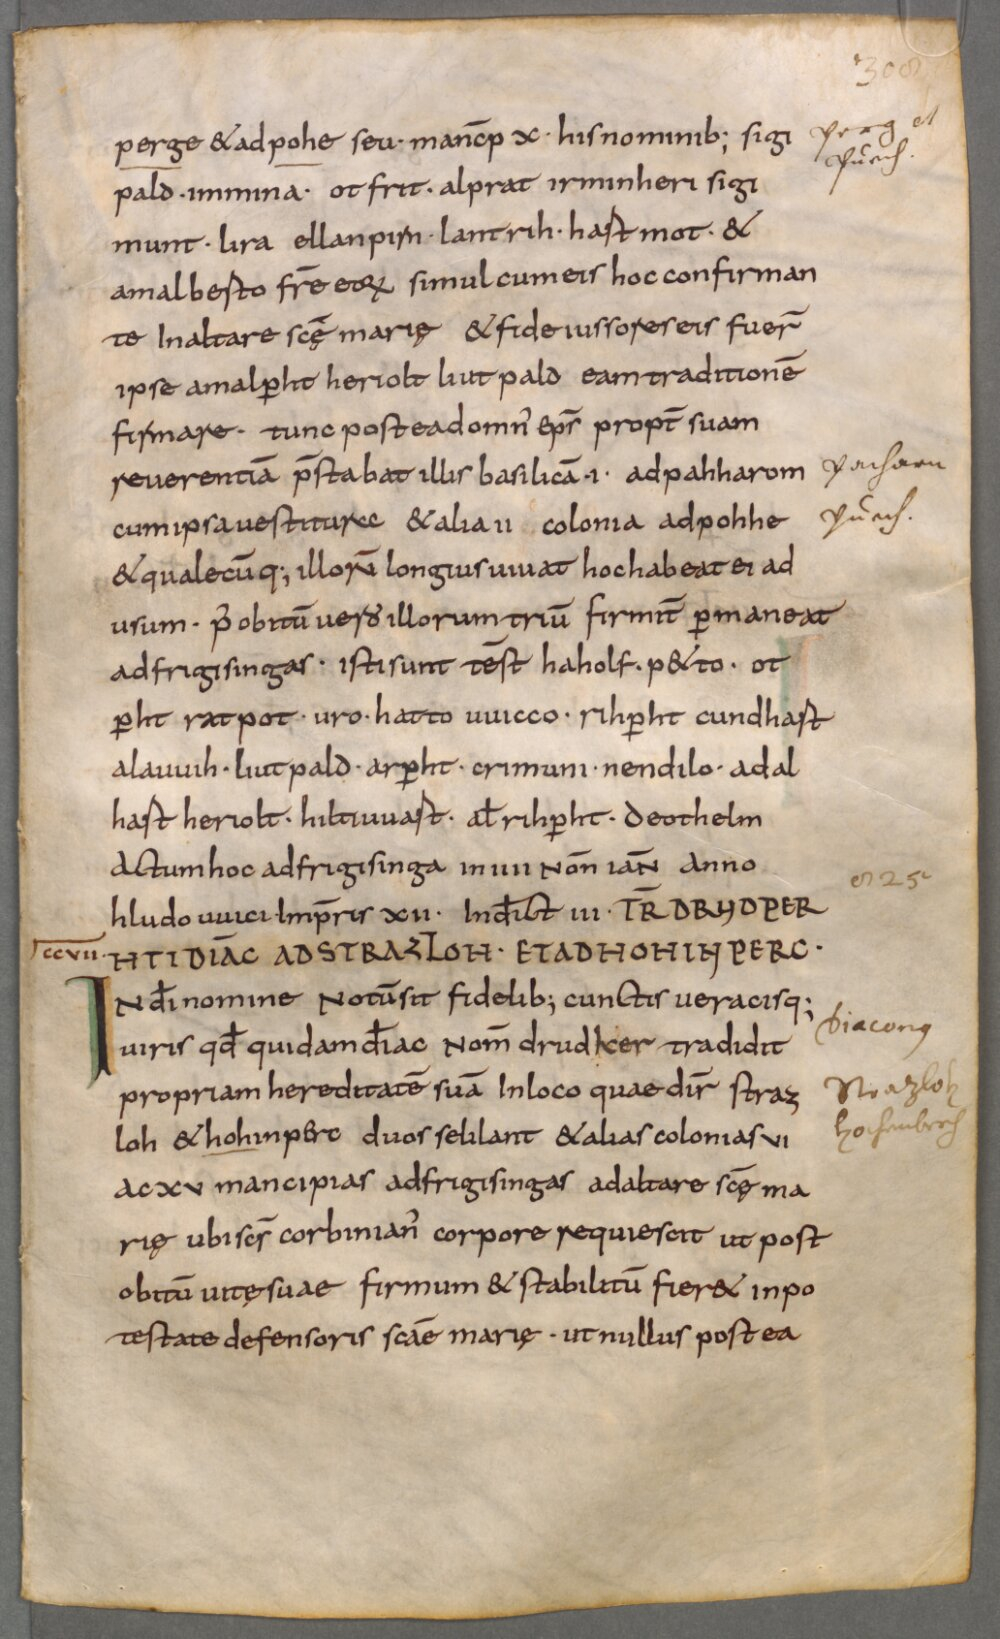 308
perge & ad pohe seu · manc̄p x · his nominib; sigi
perg et
puech.
pald̄ · imminā · ot frit · alprat irminheri sigi
munt · lira ellanpirn · lantrih · hast mot · &
amalbesto fr̄e eoꝝ simul cum eis hoc confirman
te In altare sc̄ę marię & fide iussores eis fuer̄
ipse amalꝑht heriolt liutpald eam traditionē
firmare · tunc postea domn̄ ep̄s propt̄ suam
reverentiā p̄stabat illis basilicā ·i· ad pahharom
pachaern
cum ipsa vestitura & alia ii colonia ad pohhe
puech.
& qualecūq; illorū longius vivat hoc habeat ei ad
usum · p̄ obitū vero illorum triū firmit̄ ꝑmaneat
ad frigisingas · isti sunt tēst haholf · p&to · ot
ꝑht ratpot · uro · hatto uuicco · rihꝑht cundhast
alauuih · liutpald · arꝑht · crimuni · nendilo · adal
hast heriolt · hiltiuuast · al̄ rihꝑht · deothelm
Actum hoc ad frigisinga in iiii Nōn iañ Anno
825
hludouuici Imp̄ris xii · Ind̄ict iii · TR̄ DRUDPER
ccvii · HTI DIĀC AD STRAZLOH · ET AD HOHINPERC ·
IN d̄i nomine Notū sit fidelib; cunctis veracisq;
viris qd̄ quidam d̄iac Nom̄ drudker tradidit
diaconus
propriam hereditatē suā In loco quae dir̄ straz
Strazloh
loh & hohinperc duos selilant & alias colonias vi
hochenberch
ac xv mancipias ad frigisingas ad altare sc̄ę ma
rię ubi sc̄s corbinian̄ corpore requiescit ut post
obitū vitę suae firmum & stabilitū fier& in po
testate defensoris scāe marię · ut nullus post ea